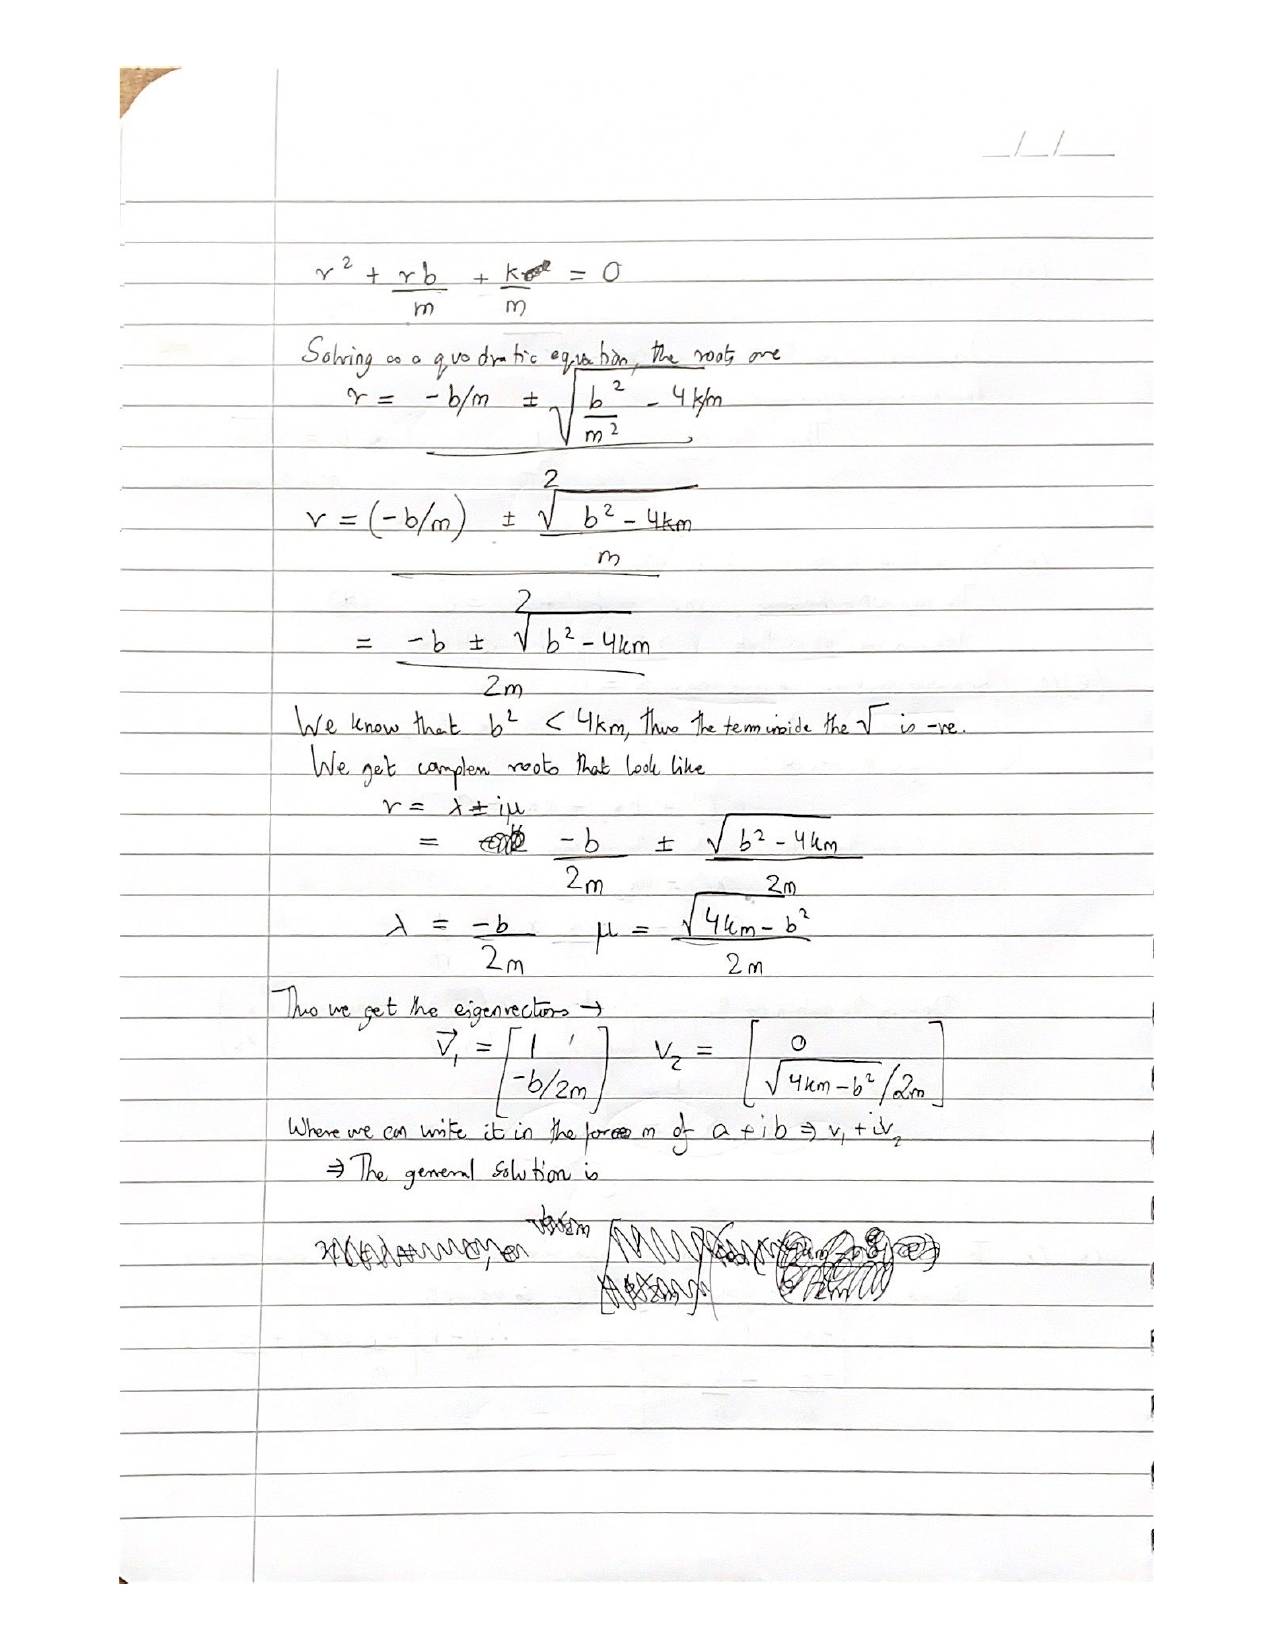 __/__/____
r² + rb/m + k/m = 0
Solving as a quadratic equation, the roots are
r = (-b/m ± √(b²/m² - 4k/m))/2
r = ((-b/m) ± √(b² - 4km)/m)/2
= (-b ± √(b² - 4km))/2m
We know that b² < 4km, thus the term inside the √ is -ve.
We get complex roots that look like
r = λ ± iμ
= -b/2m ± √(b² - 4km)/2m
λ = -b/2m μ = √(4km - b²)/2m
Thus we get the eigenvectors →
v⃗₁ = [1 -b/2m] v₂ = [0 √(4km - b²)/2m]
Where we can write it in the form of a + ib ⇒ v₁ + iv₂
⇒ The general solution is